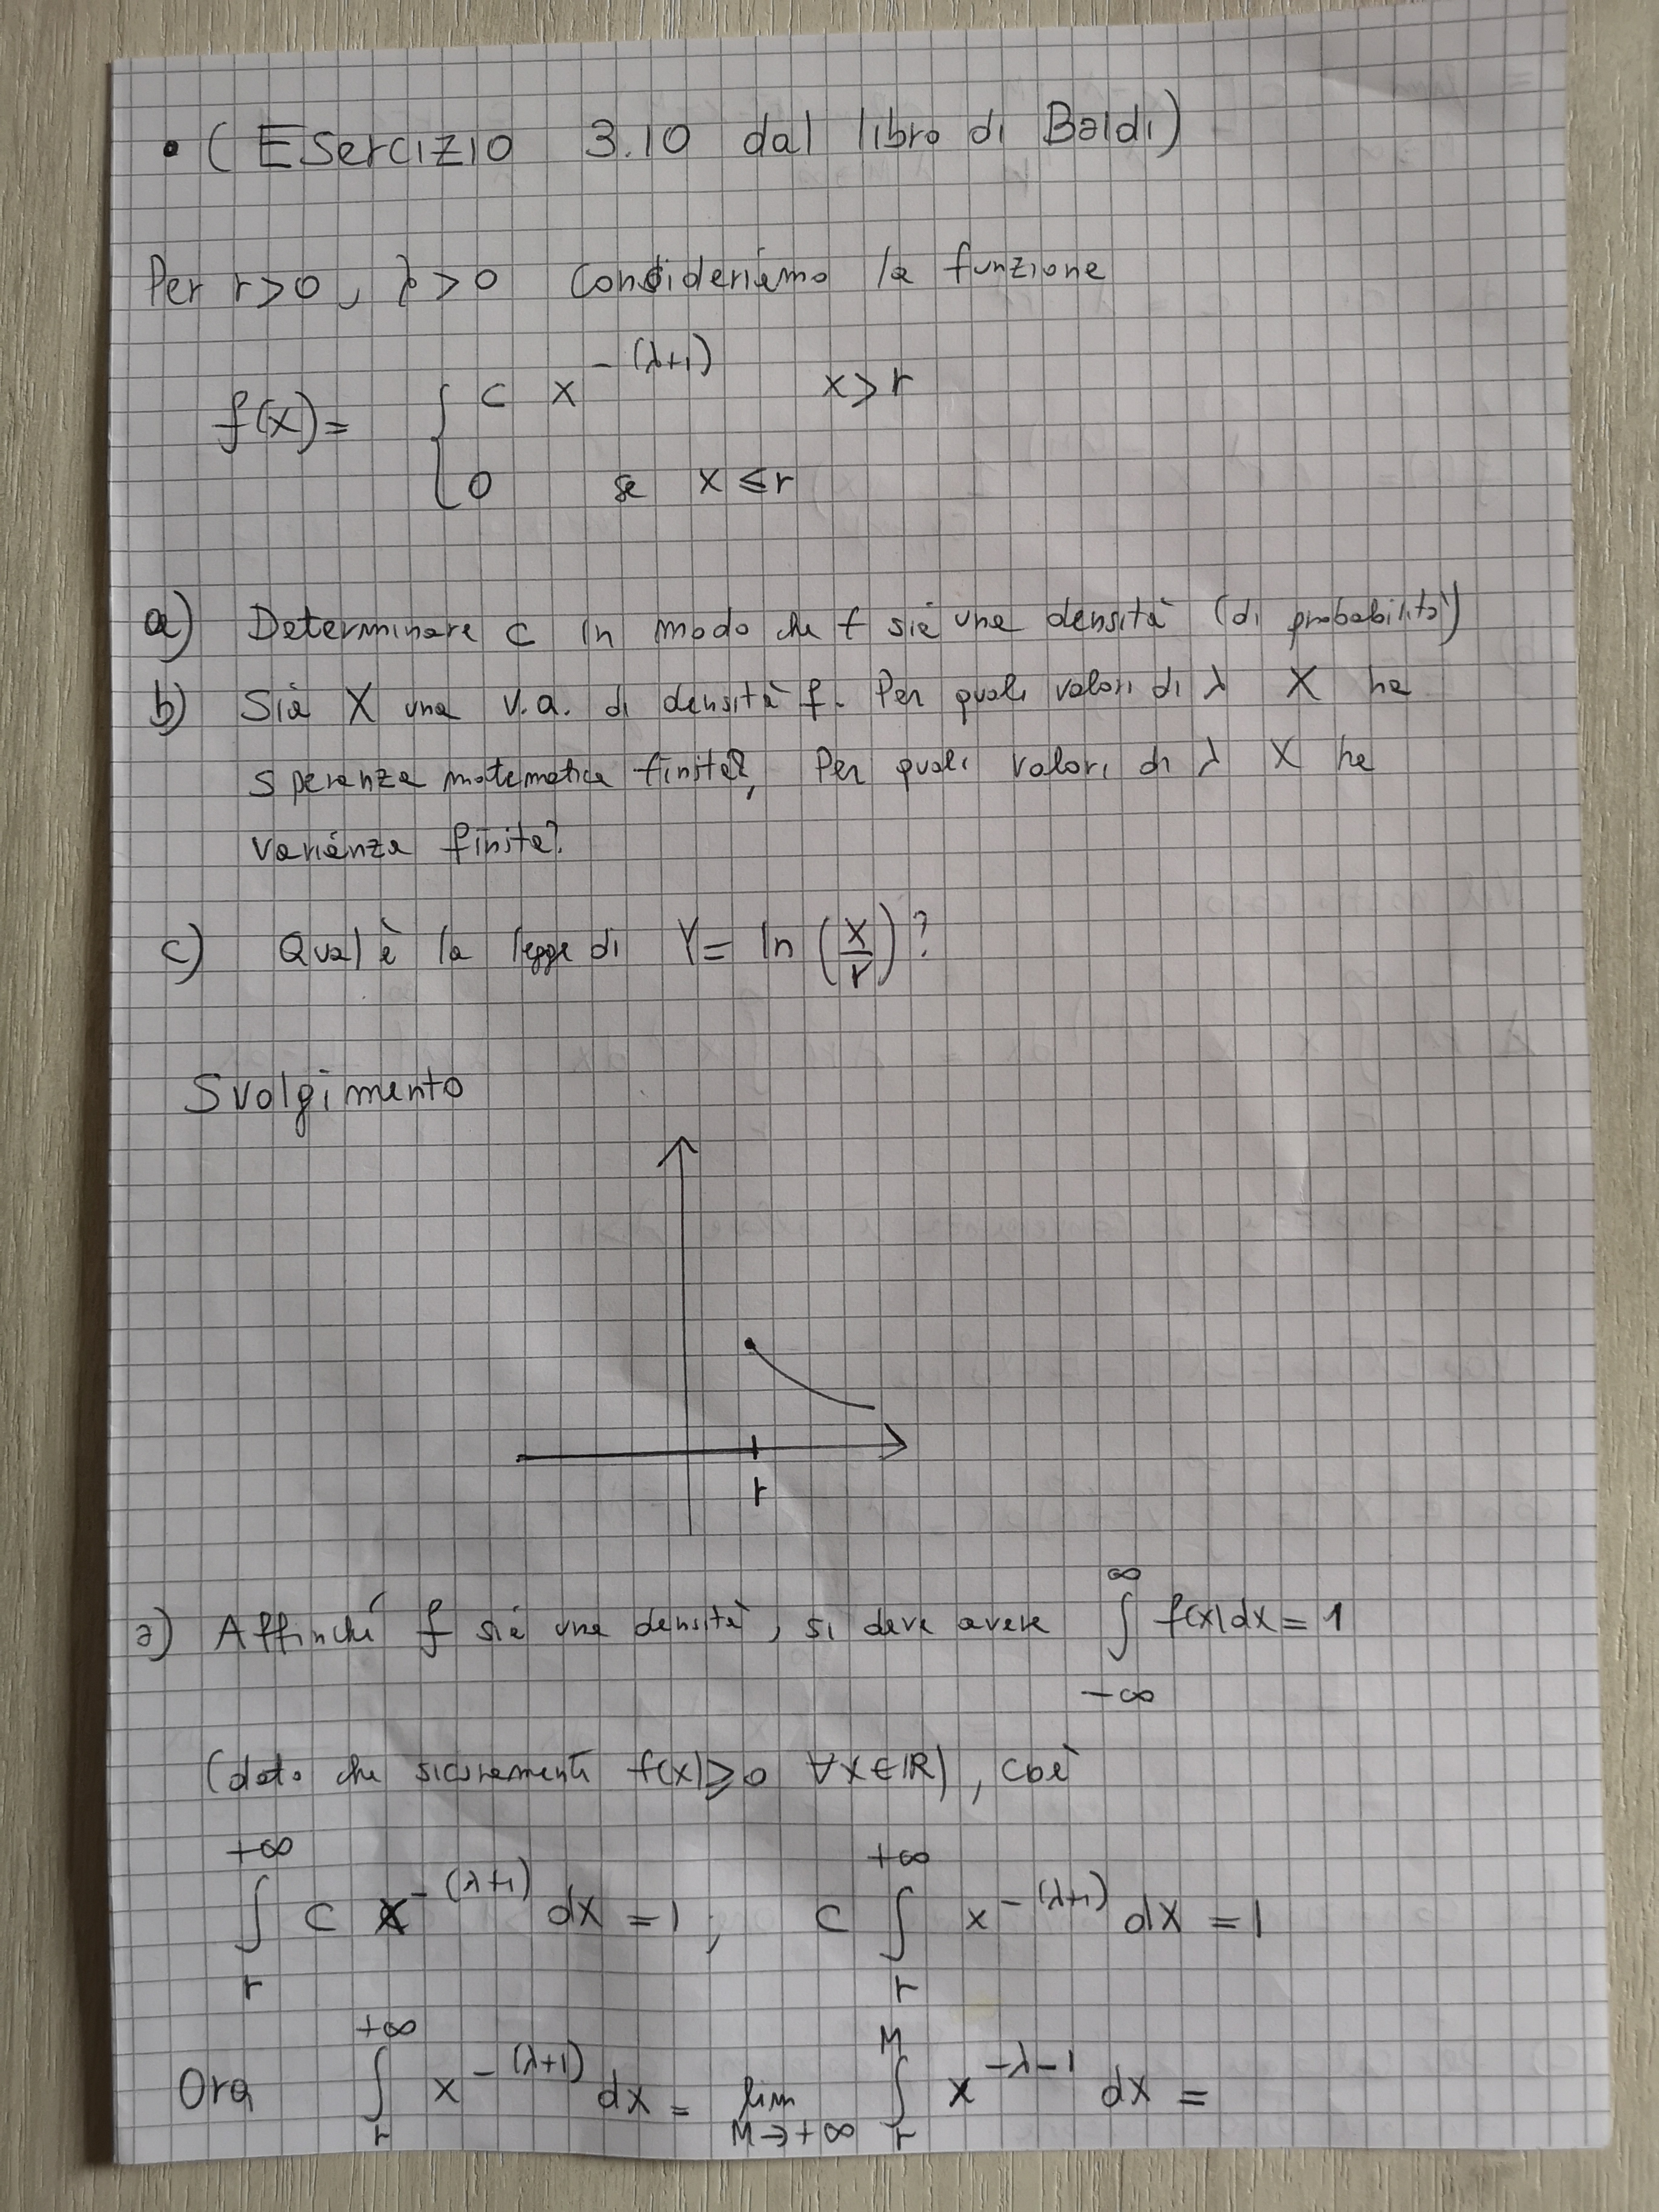 • (Esercizio 3.10 dal libro di Baldi)
Per r>0, λ>0 consideriamo la funzione
f(x)= { c x^{-(λ+1)} x>r
0 se x≤r
a) Determinare c in modo che f sia una densità (di probabilità)
b) Sia X una v.a. di densità f. Per quali valori di λ X ha
speranza matematica finita?, Per quali valori di λ X ha
varianza finita?
c) Qual è la legge di Y= ln (X/r)?
Svolgimento
r
a) Affinché f sia una densità, si deve avere ∫_{-∞}^{∞} f(x)dx=1
(dato che sicuramente f(x)≥0 ∀x∈ℝ), cioè
∫_{r}^{+∞} c x^{-(λ+1)} dx =1; c ∫_{r}^{+∞} x^{-(λ+1)} dx =1
Ora ∫_{r}^{+∞} x^{-(λ+1)} dx = lim_{M→+∞} ∫_{r}^{M} x^{-λ-1} dx =